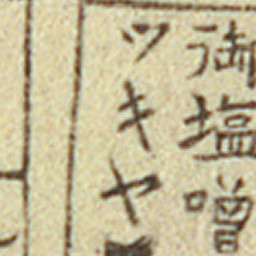 御塩噌
ツキヤ